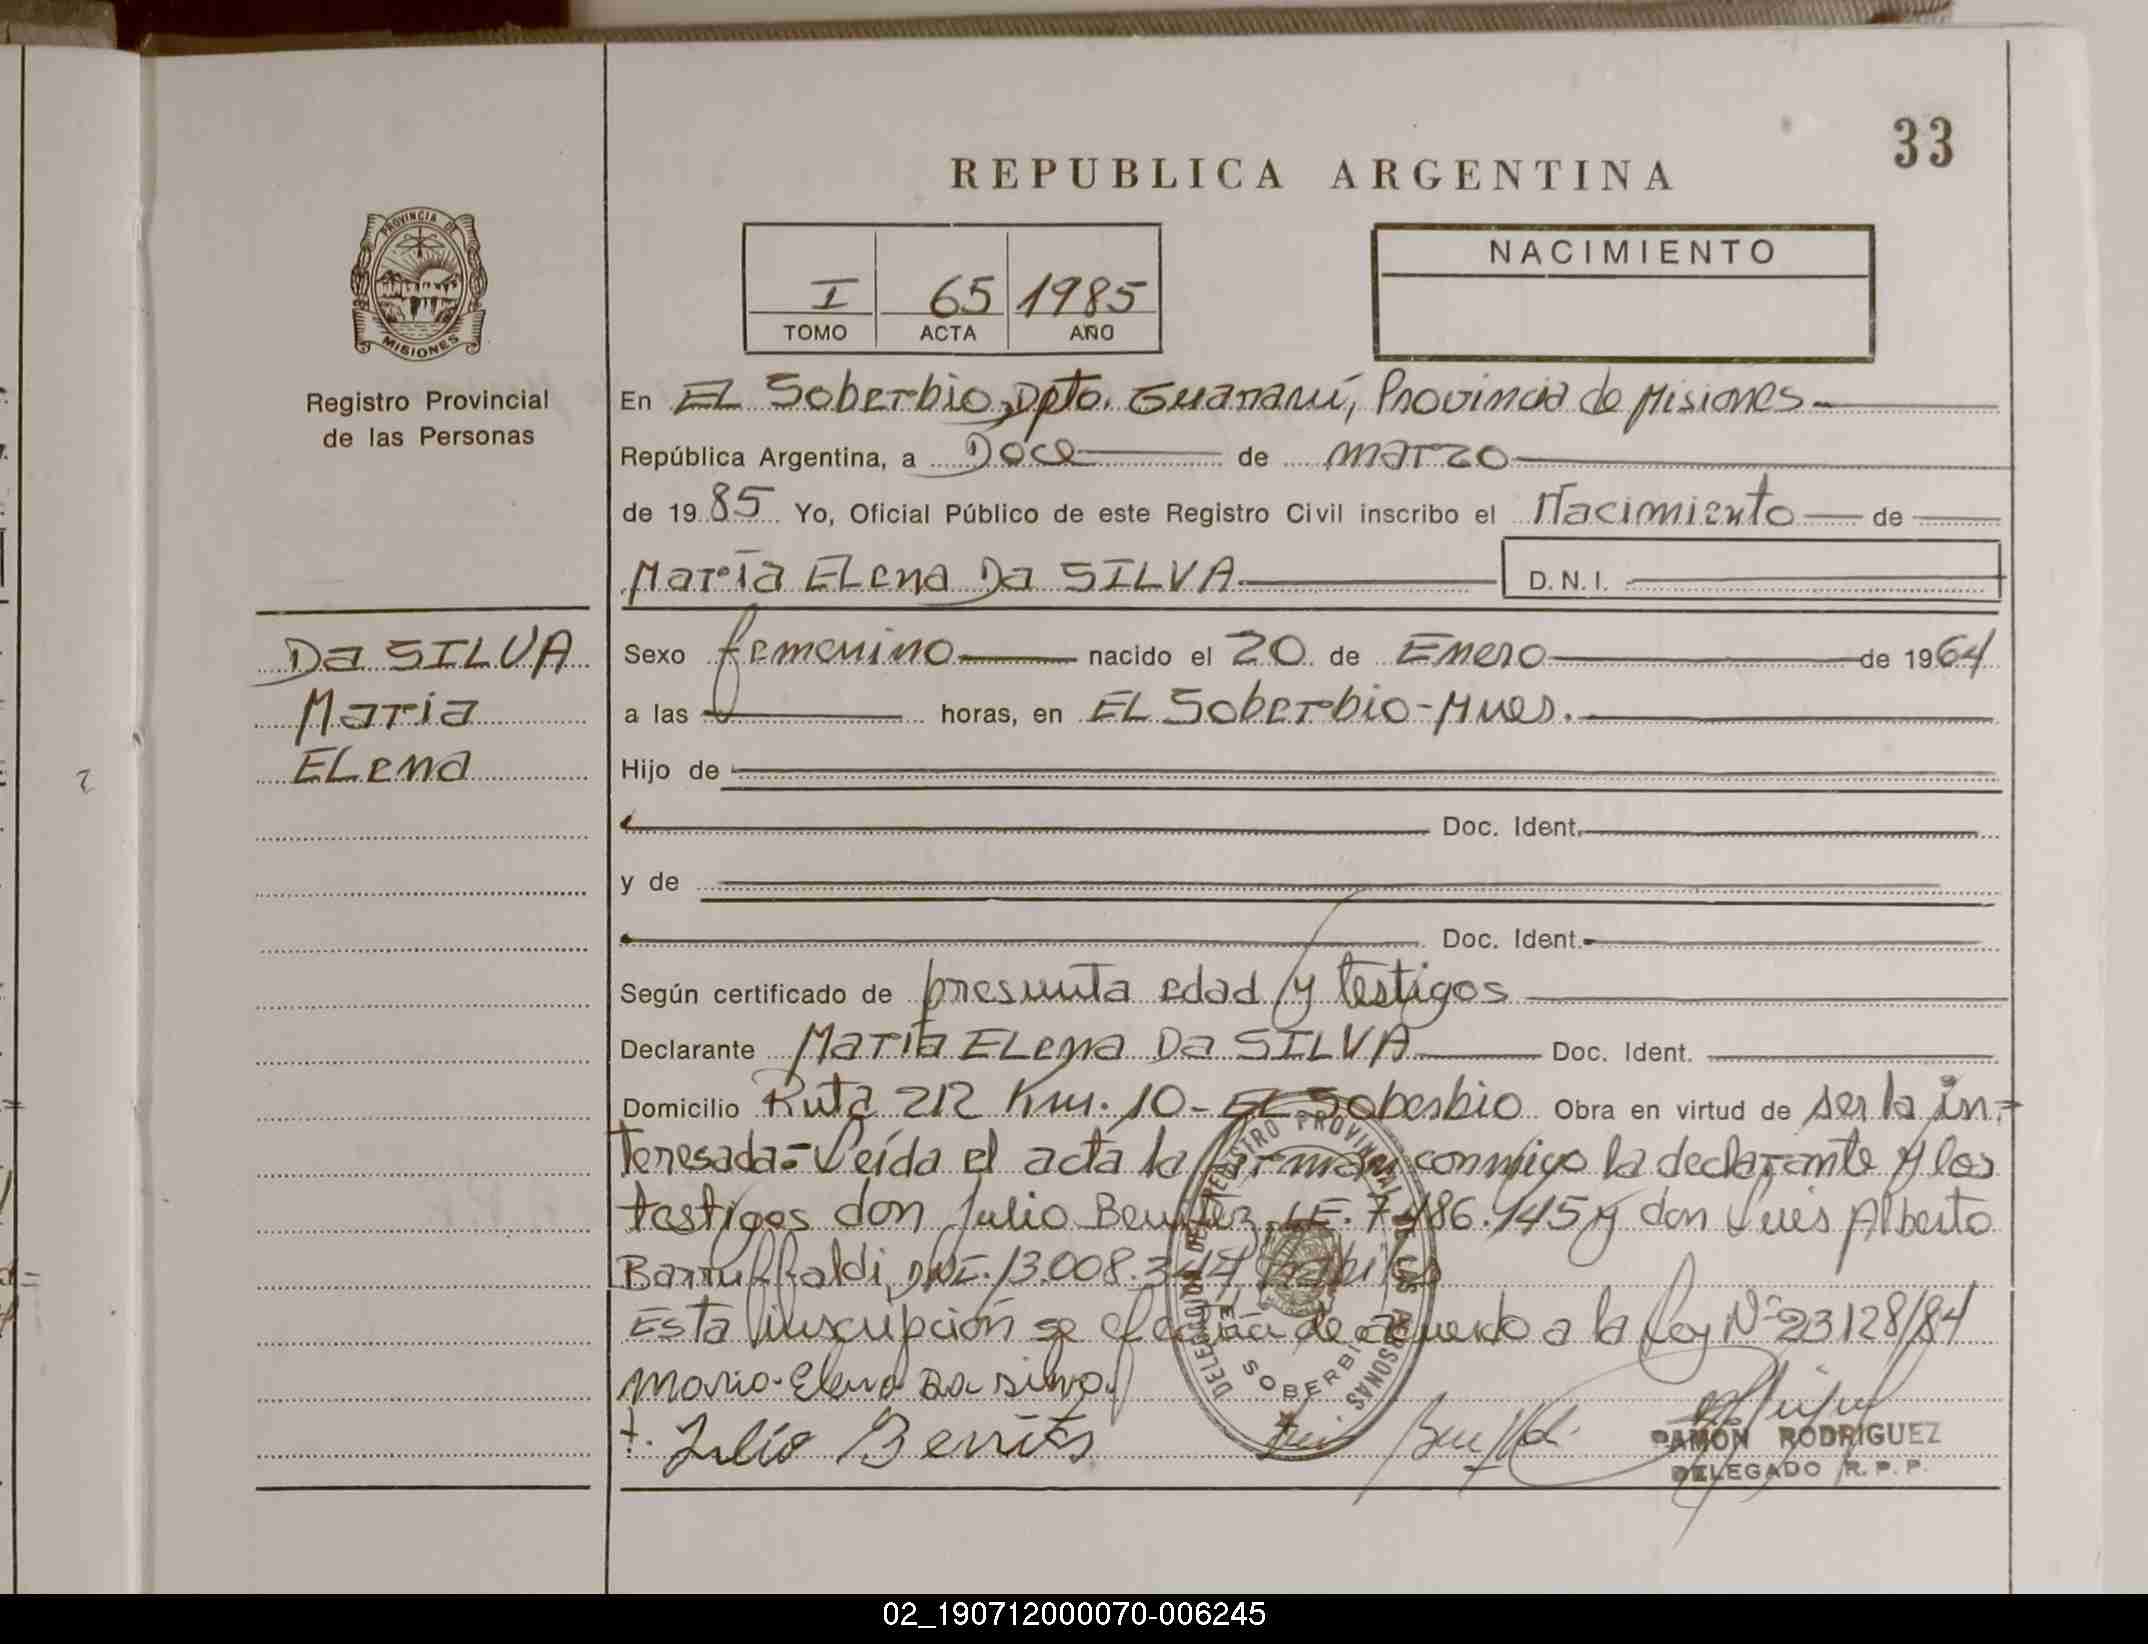 33
REPUBLICA ARGENTINA
PROVINCIA DE
MISIONES
Registro Provincial
de las Personas
I 65 1985
TOMO ACTA AÑO
NACIMIENTO
En EL Soberbio, Dpto. Guaraní, Provincia de Misiones
República Argentina, a Doce de marzo
de 1985 Yo, Oficial Público de este Registro Civil inscribo el Nacimiento de
María ELena Da SILVA D.N.I.
Da SILVA
Maria
ELena
Sexo femenino nacido el 20 de Enero de 1964
a las horas, en EL Soberbio-Mnes.
Hijo de
Doc. Ident.
y de
Doc. Ident.
Según certificado de presunta edad y testigos
Declarante María ELena Da SILVA Doc. Ident.
Domicilio Ruta 212 Km. 10- EL Soberbio Obra en virtud de ser la in-
teresada=Leída el acta la firman conmigo la declarante y los
testigos don Julio Benitez LE. 7.486.945 y don Luis Alberto
Barruffaldi DNI. 13.008.344 habiles
Esta inscripción se efectúa de acuerdo a la Ley Nº 23128/84
Maria Elena Da silva
t. Julio Benites
RAMON RODRIGUEZ
DELEGADO R. P. P.
DELEGACION DEL REGISTRO PROVINCIAL DE LAS PERSONAS
SOBERBIO
02_190712000070-006245